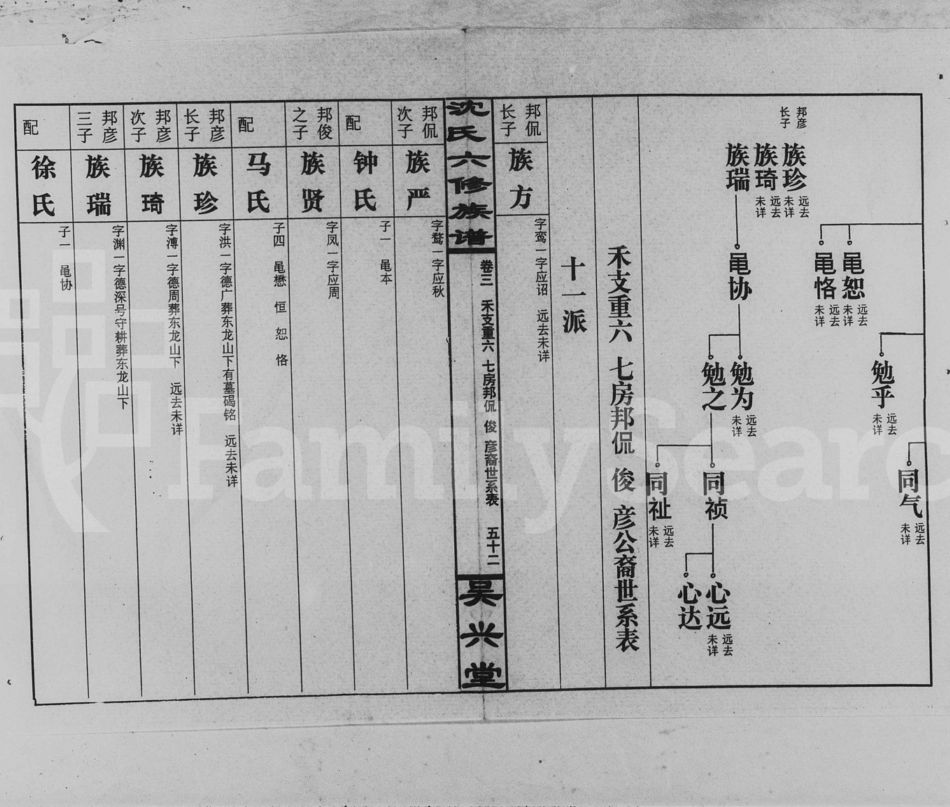 邦彦长子
族珍
远去未详
族琦
远去未详
族瑞
黾恕
远去未详
黾恪
远去未详
黾协
勉乎
远去未详
勉为
远去未详
勉之
同气
远去未详
同祯
同祉
远去未详
心远
远去未详
心达
禾支重六 七房邦侃 俊 彦公裔世系表
十一派
邦侃长子
族方
字鸾一字应诏 远去未详
沈氏六修族谱
卷三 禾支重六 七房邦侃 俊 彦裔世系表 五十二
吴兴堂
邦侃次子
族严
字鹜一字应秋
配
钟氏
子一 黾本
邦俊之子
族贤
字凤一字应周
配
马氏
子四 黾懋 恒 恕 恪
邦彦长子
族珍
字洪一字德广葬东龙山下有墓碣铭 远去未详
邦彦次子
族琦
字溥一字德周葬东龙山下 远去未详
邦彦三子
族瑞
字渊一字德深号守耕葬东龙山下
配
徐氏
子一 黾协
FamilySearch